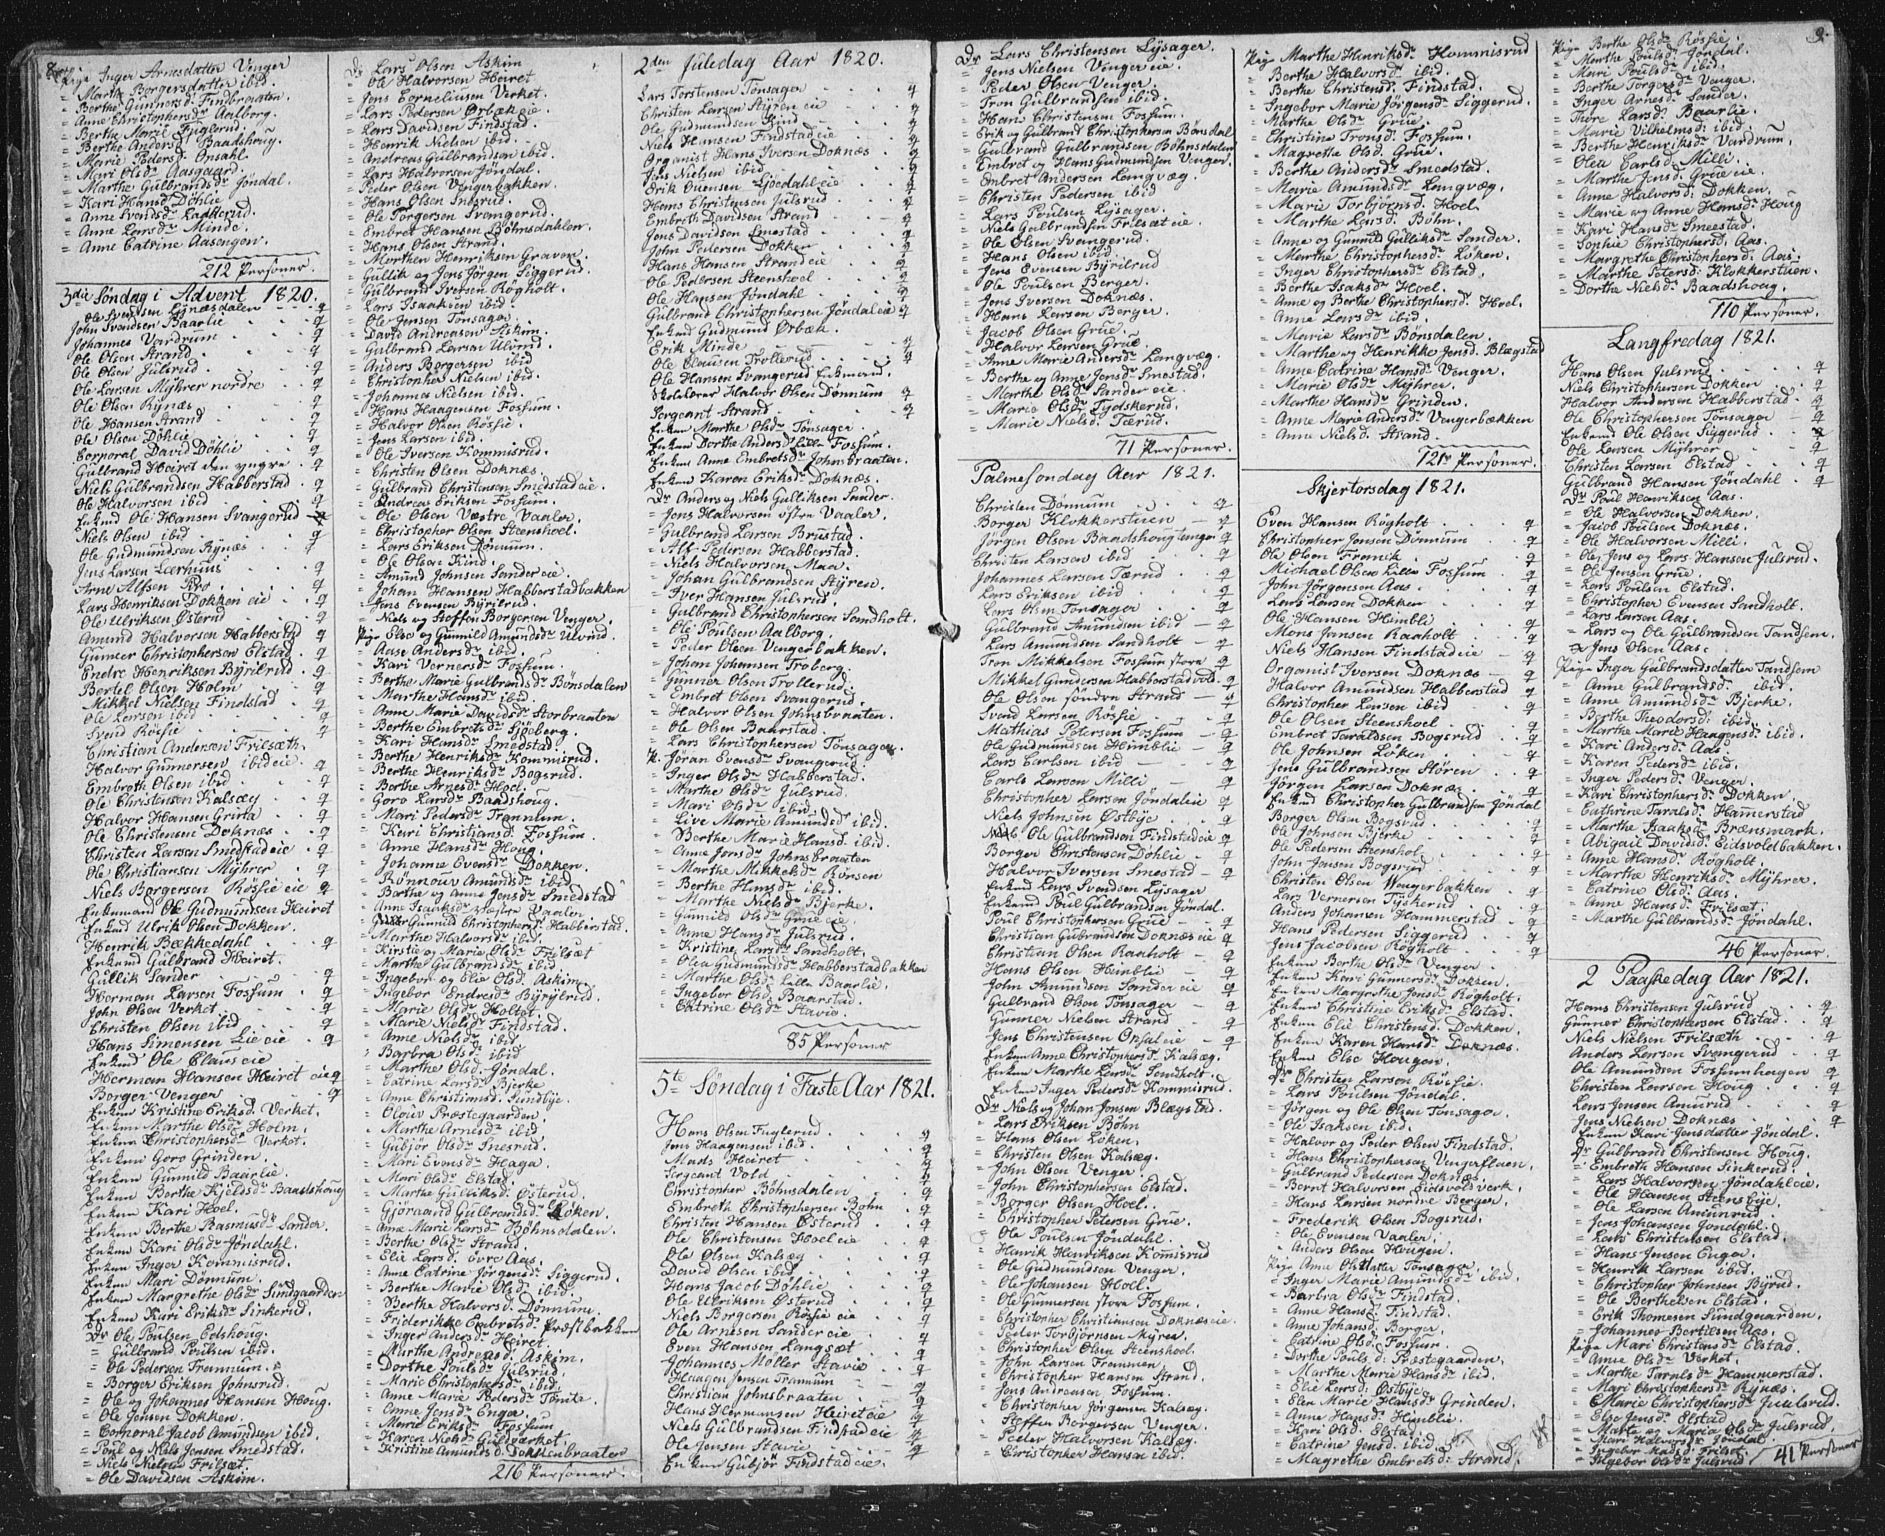 Pige Inger Arnesdatter Venger
= Marthe Borgersdatter ibid
= Berthe Gunnersd: Findbraaten.
= Anne Christophersdr Aalborg.
= Berthe Marie Fuglerud.
= Berthe Andersdr Baadshoug.
= Marie Pedersd: Onsahl.
= Mari Olsdr Aasgaard.
= Marthe Gulbrandsdr Jöndal.
= Kari Hansdr Döhlie
= Anne Svendsdr Laakerud.
= Anne Larsdr Minde.
= Anne Catrine Aasengen.
212 Personer.
3die Söndag i Advent 1820.
Ole Svendsen Lynæsdalen = = q
John Svendsen Baarlie . . q
Johannes Vardrum . . q
Ole Olsen Strand . . q
Ole Olsen Julsrud . . q
Ole Larsen Mÿhrer nordre . . q
Ole Olsen Rÿnæs . . q
Ole Hansen Strand . . q
Ole Olsen Döhlie . . q
Corporal David Döhlie . q
Gulbrand Heiret den yngre . q
Niels Gulbrandsen Habberstad . q
Ole Halvorsen ibid . . q
Enkemd Ole Hansen Svangerud q
Niels Olsen ibid . . q
Ole Gudmundsen Rÿnæs . . q
Jens Larsen Leerhuus . . q
Arne Alfsen Bro . . q
Lars Henriksen Dokken eie . q
Ole Ulriksen Österud . . q
Amund Halvorsen Habberstad q
Gunner Christophersen Elstad . q
Endre Henriksen Bÿrilrud . q
Bertel Olsen Holm . . q
Mikkel Nielsen Findstad . q
Ole Larsen ibid . . q
Svend Rösfie . . q
Christian Andersen Frilsæth.
Halvor Gunnersen ibid eie . q
Embreth Olsen ibid . . q
Ole Christensen Kalsæg . q
Halvor Hansen Grina . q
Ole Christensen Doknæs . . q
Christen Larsen Smedstad eie . q
Ole Christiansen Mÿhrer . q
Niels Borgersen Rösfie eie q
Enkemand Ole Gudmundsen Heiret
Enkemd Ulrik Olsen Dokken.
Henrik Bækkedahl . . q
Enkemd Gulbrand Heiret.
Gullik Sander . . q
Herman Larsen Fossum . q
John Olsen Verket . . q
Christen Olsen ibid . q
Hans Simensen Lie eie . q
Enkemd Ole Claus eie
Herman Hansen Heiret eie q
Borger Venger . . q
Enken Kristine Eriksd: Verket.
Enken Marthe Olsdr Holm.
Enken Christophersdr Verket.
Enken Goro Grinden.
Enken Gunnild Baarlie.
Enken Berthe Kjeldsdr Baadshoug
Enken Kari Hoel.
Enken Berthe Rasmusdr Sander.
Enken Kari Olsdr Jöndahl.
Enken Inger Kommisrud.
Enken Mari Dönnum.
Enken Margrethe Olsdr Sundgaarden
Enken Kari Eriksdr Sinkerud.
Dr Ole Poulsen Eidshoug.
= Gulbrand Poulsen ibid.
= Ole Pedersen Tronnum.
= Borger Eriksen Johnsrud.
= Ole og Johannes Hansen Houg.
= Ole Jensen Dokken.
= Corporal Jacob Amundsen ibid.
= Poul og Niels Jensen Smedstad.
= Niels Nielsen Frilsæt.
= Ole Davidsen Askim.
Dr Lars Olsen Askim
= Ole Halvorsen Heiret
= Jens Corneliusen Verket.
= Lars Pedersen Ørbæk eie.
= Lars Davidsen Findstad.
= Henrik Nielsen ibid.
= Andreas Gulbrandsen ibid.
= Lars Halvorsen Jöndal.
= Peder Olsen Vengerbakken.
= Hans Olsen Snesrud.
= Ole Torgersen Svangerud.
= Embret Hansen Böhnsdahlen.
= Hans Olsen Strand.
= Morthen Henriksen Graven.
= Gullik og Jens Jörgen Siggerud.
= Gulbrand Iversen Rögholt.
= Lars Isaaksen ibid.
= Ole Jensen Tonsager.
= David Andreasen Askim.
= Gulbrand Larsen Ulvrud.
= Anders Borgersen ibid.
= Christopher Nielsen ibid.
= Johannes Nielsen ibid.
= Hans Haagensen Fossum.
= Halvor Olsen Rösfie.
= Jens Larsen ibid.
= Ole Iversen Kommisrud.
= Christen Olsen Doknæs.
= Gulbrand Christensen Smedstad eie.
= Andreas Eriksen Fossum.
= Ole Olsen Væstre Vaaler.
= Christopher Olsen Steenshoel.
= Lars Eriksen Dönnum.
= Ole Olsen Kind.
= Amund Johnsen Sander eie.
= Johan Hansen Habberstadbakken
= Jens Evensen Bÿrilrud.
= Niels og Steffen Borgersen Venger.
Pige Else og Gunnild Amundsdr Ulvrud.
= Aase Andersdr ibid.
= Kari Vernersdr Fossum.
= Berthe Marie Gulbrandsdr Bönsdalen
= Marthe Hansdr ibid
= Anne Marie Davidsdr Storbraaten
= Berthe Embretsdr Sjöberg.
= Kari Hansdr Smedstad
= Berthe Henriksdr Kommisrud.
= Berthe Henriksdr Bogsrud.
= Berthe Arnesdr Hoel.
= Goro Larsdr Baadshoug.
= Mari Pedersdr Tronnum.
= Kari Christiansdr Fossum.
= Anne Hansdr Houg.
= Johanne Evensdr Dokken.
= Rönnouv Amundsdr ibid
= Berthe og Anne Jensdr Smedstad
= Anne Isaaksdr Væstre Vaaler
= Gunnild Christophersdr Habberstad.
= Marthe Halvorsdr ibid.
= Kirstie og Marie Olsdr Frilsæt
= Marthe Gulbrandsdr ibid.
= Ingebor og Elie Olsd. Askim.
= Ingebor Endresdr Bÿrilrud.
= Marie Olsdr Holtet.
= Marie Nielsdr Findstad.
= Anne Nielsdr ibid
= Barbra Olsdr ibid
= Marthe Olsdr Jöndal.
= Catrine Larsdr Bjerke
= Anne Christiansdr Sundbÿe.
= Olouv Præstegaarden.
= Marthe Arnesdr ibid.
= Gubjör Olsdr Snesrud.
= Mari Evensdr Haga.
= Mari Olsdr Elstad.
= Marthe Gulliksdr Österud.
= Gjöraand Gulbrandsdr Löken.
= Anne Marie Larsdr Böhnsdalen.
= Berthe Olsdr Strand.
= Elie Larsd. Övre Aas.
= Anne Catrine Jörgensdr Siggerud.
= Berthe Marie Olsd ibid.
= Berthe Halvorsd. Dönnum.
= Friderikke Embretsdr Præstbakken
= Inger Andersdr Heiret.
= Marthe Andreasdr Askim.
= Dorthe Poulsdr Julsrud.
= Marie Christophersdr ibid.
= Anne Marie Pedersdr Tömte.
= Anne Jensdr Enger.
= Marie Eriksdr Fossum
= Karen Nielsdr Guldverket.
= Kristine Amundsdr Dokkenbraaten
216 Personer.
2den Juledag Aar 1820.
Lars Torstensen Tonsager . . q
Christen Larsen Styren eie . . q
Ole Gudmundsen Kind . . q
Niels Hansen Findstad eie . . q
Organist Hans Iversen Doknæs . . q
Jens Nielsen ibid . . q
Erik Evensen Sjödahl eie . . q
Hans Christensen Julsrud . . q
Embreth Davidsen Strand . . q
Jens Davidsen Smestad . . q
John Pedersen Dokken . . q
Hans Hansen Strand eie . . q
Ole Pedersen Steenshoel . . q
Ole Hansen Jöndahl . . q
Gulbrand Christophersen Jöndal eie q
Enkemd Gudmund Ørbæk.
Erik Minde . . q
Ole Clausen Trollerud . . q
Ole Hansen Svangerud Enkemand.
Skolelærer Halvor Olsen Dönnum q
Sergeant Strand . . q
Enken Marthe Olsdr Tonsager.
Enken Dorthe Andersdr Lille Fossum.
Enken Anne Embretsdr Johnsbraaten.
Enken Karen Eriksdr Doknæs.
Dr Anders og Niels Gulliksen Sander.
= Jens Halvorsen Østre Vaaler.
= Gulbrand Larsen Brustad.
= Alf Pedersen Habberstad.
= Niels Halvorsen Maa.
= Johan Gulbrandsen Stÿren.
= Iver Hansen Julsrud.
= Gulbrand Christophersen Sandholt.
= Ole Poulsen Aalborg.
= Peder Olsen Vengerbakken.
= Johan Johansen Troberg.
= Gunner Olsen Trollerud.
= Embret Olsen Svangerud.
= Halvor Olsen Johnsbraaten.
= Ole Olsen Baarstad.
= Lars Christophersen Tonsager.
P. Jöran Evensdr Svangerud.
= Inger Olsdr Habberstad.
= Marthe Olsdr Julsrud.
= Mari Olsdr ibid.
= Live Marie Amundsdr ibid.
= Berthe Marie Hansd. ibid.
= Anne Jonsdr Johnsbraaten
= Marthe Mikkelsdr Rönsen
= Berthe Hansdr ibid.
= Marthe Nielsdr Bjerke.
= Gunnild Olsdr Grue eie
= Anne Hansdr Julsrud.
= Kristine Larsdr Sandholt.
= Olea Gudmundsdr Habberstadbakken
= Marthe Olsdr Lille Baarlie.
= Ingebor Olsdr Baarstad.
= Catrine Olsdr Stavie.
85 Personer
5te Söndag i Faste Aar 1821.
Hans Olsen Fuglerud . . q
Jens Haagensen ibid . . q
Mads Heiret . . q
Sergeant Vold . . q
Christopher Böhnsdalen . . q
Embreth Christophersen Bøhn . q
Christen Hansen Østerud . . q
Ole Christensen Hoel eie . . q
Ole Olsen Kalsæg . . q
David Olsen ibid . . q
Hans Jacob Döhlie . . q
Ole Ulriksen Østerud . . q
Niels Borgersen Rösfie eie . . q
Ole Arnesen Sander eie . . q
Even Hansen Langsæt . . q
Johannes Möller Stavie . . q
Haagen Jensen Trannum . . q
Christian Johnsbraaten . . q
Hans Hermansen Heiret eie . q
Niels Gulbrandsen Findstad eie q
Ole Jensen Stavie . . q
Enken Gubjör Findstad eie.
Dr Lars Christensen Lÿsager.
= Jens Nielsen Venger eie.
= Peder Olsen Venger.
= Tron Gulbrandsen ibid.
= Hans Christensen Fossum.
= Erik og Gulbrand Christophersen Bönsdal
= Gulbrand Gulbrandsen Böhnsdalen
= Embret og Hans Gudmundsen Venger.
= Embret Andersen Langvæg.
= Christen Pedersen ibid
= Lars Poulsen Lÿsager.
= Niels Gulbrandsen Frilsæt eie.
= Ole Olsen Svangerud.
= Hans Olsen ibid.
= Jens Evensen Bÿrilrud.
= Ole Poulsen Berger.
= Jens Iversen Doknæs.
= Hans Larsen Berger.
= Jacob Olsen Grue.
= Halvor Larsen Grue.
= Anne Marie Andersdr Langvæg.
= Berthe og Anne Jensdr Smestad.
= Marthe Olsdr Sander eie.
= Marie Olsdr Tÿdskerud.
= Marie Nielsdr Tærud.
71 Personer.
Palmesöndag Aar 1821.
Christen Dönnum . . q
Borger Klokkerstuen . . q
Jörgen Olsen Baadshougtangen q
Christen Larsen ibid . . q
Johannes Larsen Tærud . . q
Lars Eriksen ibid . . q
Lars Olsen Tonsager . . q
Gulbrand Amundsen ibid . q
Lars Amundsen Sandholt . q
Tron Mikkelsen Fossum store q
Mikkel Gundersen Habberstad vols. q
Ole Olsen söndre Strand . q
Svend Larsen Rösfie . . q
Mathias Petersen Fossum . q
Ole Gudmundsen Hemblie . q
Lars Carlsen ibid . . q
Carls Larsen Milli . . q
Christopher Larsen Jöndaleie q
Niels Johnsen Østbÿe . . q
Ole Gulbrandsen Findstad eie q
Borger Christensen Döhlie . q
Halvor Iversen Smestad . q
Enkemd Lars Svendsen Lÿsager
Enkemd Poul Gulbrandsen Jöndal.
Poul Christophersen Grue . q
Christian Gulbrandsen Doknæs eie q
Christian Olsen Raaholt . q
Hans Olsen Hemblie . q
John Amundsen Sander eie q
Gulbrand Olsen Tonsager . q
Gunner Nielsen Strand . q
Jens Christensen Onsal eie . q
Enken Anne Christophersdr Kalsæg.
Enken Marthe Larsdr Sandholt.
Enken Inger Pedersdr Kommisrud.
Dr Niels og Johan Jonsen Blægstad.
= Lars Eriksen Bøhn
= Hans Olsen Löken.
= Christen Olsen Kalsæg.
= John Olsen Venger.
= John Christophersen Elstad.
= Borger Olsen Hoel.
= Christopher Petersen Grue.
= Ole Poulsen Jöndahl.
= Henrik Henriksen Kommisrud
= Ole Gudmundsen Venger.
= Ole Johansen Hoel.
= Ole Gunnersen store Fossum.
= Christopher Christiansen Doknæs eie.
= Peder Torbjörnsen Mÿrer.
= Christopher Olsen Steenshoel.
= John Larsen Trommen.
= Christopher Hansen Strand.
= Jens Andreasen Fossum.
= Christopher Jörgensen Kalsæg.
= Steffen Borgersen Venger.
= Peder Halvorsen Kalsæg.
= Christopher Hansen ibid.
Pige Marthe Henriksdr Kommisrud
= Berthe Halvorsdr ibid.
= Berthe Christensdr Findstad.
= Ingebor Marie Jörgensdr Siggerud.
= Marthe Olsdr Grüe.
= Christine Tronsdr Fossum.
= Magrethe Olsd. Grüe.
= Berthe Andersdr Smedstad.
= Marie Amundsdr Langvæg.
= Marie Torbjörnsdr Hoel.
= Marthe Larsdr Bøhn.
= Anne og Gunnild Gulliksdr Sander.
= Marthe Christophersdr Löken.
= Inger Christophersdr Elstad.
= Berthe Isaksdr Hoel.
= Anne og Berthe Christophersdr Hoel.
= Anne Larsdr ibid.
= Marie Larsdr Bönsdalen.
= Marthe og Henrikke Jensd. Blægstad
= Anne Catrine Hansdr Venger.
= Marie Olsdr Mÿhrer.
= Marthe Hansdr Grinden.
= Anne Marie Andersdr Vengerbækken
= Anne Nielsdr Strand.
121 Personer.
Skjertorsdag 1821.
Even Hansen Rögholt . . q
Christopher Jonsen Dönnum . q
Ole Olsen Tronek . . q
Michael Olsen Lille Fossum . q
John Jörgensen Aas . . q
Lars Larsen Dokken . . q
Ole Hansen Himbli . . q
Mons Jansen Raaholt . . q
Niels Hansen Findstad eie . q
Organist Iversen Doknæs . q
Halvor Amundsen Habberstad q
Christopher Larsen ibid . q
Ole Olsen Steenshoel . . q
Embret Taraldsen Bogsrud . q
Ole Johnsen Löken . . q
Jens Gulbrandsen Stören . q
Jörgen Larsen Doknæs . . q
Enkemd Christopher Gulbrandsen Jöndal
Borger Olsen Bogsrud . . q
Ole Johnsen Bjerke . . q
Ole Pedersen Steenshol . . q
John Jonsen Bogsrud . . q
Christen Olsen Wengerbakken . q
Lars Vernersen Tyskerud . . q
Anders Johansen Hammerstad . q
Hans Pedersen Siggerud . . q
Jens Jacobsen Rögholt . . q
Enken Berthe Olsdr Venger .
Enken Kari Gunnersdr Dokken.
Enken Margrethe Jensdr Rögholt.
Enken Christine Eriksdr Elstad.
Enken Elie Christensdr Dokken.
Enken Karen Hansdr Doknæs.
Enken Else Hougen.
Dr Christen Larson Rösfie.
= Lars Poulsen Jöndal.
= Jörgen og Ole Olsen Tonsager.
= Ole Isaksen ibid.
= Halvor og Peder Olsen Findstad.
= Hans Christophersen Vengerflaen.
= Gulbrand Pedersen Doknæs.
= Bernt Halvorsen Eidsvoldsverk.
= Hans Larsen nordre Berger.
= Frederik Olsen Bogsrud.
= Ole Evensen Vaaler.
= Anders Olsen Hougen.
Pige Anne Olsdatter Tonsager.
= Inger Marie Amundsdr ibid.
= Barbra Olsdr Findstad.
= Anne Hansd Findstad.
= Anne Johansd. Berger.
= Catrine Olsdr Fossum.
= Dorthe Poulsd. Præstegaarden.
= Marthe Marie Hansdr ibid.
= Elie Larsd: Østbÿe.
= Elen Marie Hansdr Grinden.
= Anne Hansdr Himblie.
= Kari Olsd. Elstad.
= Catrine Jensd. ibid
= Magrethe Embretsdr Strand.
9.
Pige Berthe Olsdr Rösfie.
= Marthe Poulsdr Jöndal.
= Mari Poulsdr ibid.
= Berthe Torgersdr Venger.
= Inger Arnesdr Sander.
= Thore Larsd: Baarlie.
= Marie Vilhelmsd: ibid.
= Berthe Henriksdr Vardrum.
= Olea Carlsd: Milli.
= Marthe Jensd: Grüe eie.
= Anne Halvorsd: Dokken.
= Marie og Anne Hansdr Houg
= Kari Hansdr Smeestad.
= Sophie Christophersd: Aas.
= Margrethe Christophersd: Aas.
= Marthe Petersd: Klokkerstuen.
= Dorthe Nielsdr Baadshoug.
110 Personer.
Langfredag 1821.
Hans Olsen Julsrud . . q
Niels Christophersen Dokken q
Halvor Andersen Habberstad . q
Ole Christophersen Tonsager q
Enkemd Ole Olsen Siggerud . q
Ole Larsen Mÿhrer . . q
Christen Larsen Elstad . . q
Gulbrand Hansen Jöndahl . q
Dr Poul Henriksen Aas.
= Ole Halvorsen Dokken.
= Jacob Poulsen Doknæs.
= Ole Halvorsen Milli.
= Ole, Jens og Lars Hansen Julsrud.
= Ole Jensen Grüe.
= Lars Poulsen Elstad.
= Christopher Evensen Sandholt.
= Lars Larsen Aas.
= Lars og Ole Gulbrandsen Tandsem.
= Jens Olsen Aas.
Pige Inger Gulbrandsdatter Tandsem
= Anne Gulbrandsd: ibid.
= Anne Amundsdr Bjerke.
= Berthe Theodorsd: ibid.
= Marthe Marie Haagensd: ibid.
= Kari Andersdr Aas.
= Karen Pedersdr ibid.
= Inger Pedersdr Venger.
= Kari Christophersdr Dokken.
= Cathrine Taralsdr Hamerstad
= Marthe Isaksdr Brænsmark.
= Abigael Davidsd. Eidsvoldbakken.
= Anne Hansdr Rögholt.
= Marthe Henriksdr Mÿhrer.
= Catrine Olsd: Aas.
= Anne Hansdr Frilsæt.
= Marthe Gulbrandsdr Jöndahl.
46 Personer.
2 Paaskedag Aar 1821.
Hans Christensen Julsrud . . q
Gunner Christophersen Elstad . . q
Niels Nielsen Frilsæth . . q
Anders Larsen Svangerud . . q
Ole Amundsen Fossumhagen q
Christen Larsen Houg . . q
Lars Jensen Amunrud . . q
Jens Nielsen Doknæs . . q
Enken Kari Jensdatter Jöndal.
Dr Gulbrand Christensen Houg.
= Embreth Hansen Sinkerud.
= Lars Halvorsen Jöndahl eie.
= Ole Hansen Steensbÿe.
= Ole Larsen Amunrud.
= Jens Johansen Jöndahl.
= Lars Christensen Elstad.
= Hans Jensen Enger.
= Henrik Larsen ibid.
= Christopher Johnsen Bÿrud.
= Ole Berthelsen Elstad.
= Erik Thomesen Sundgaarden.
= Johannes Bertilsen Aas.
Pige Mari Christensdr Elstad.
= Anne Olsdr Verket.
= Marthe Tarulsdr Hammerstad.
= Mari Christophersdr Rÿnæs.
= Marie Christophersdr Julsrud.
= Else Jensdr Elstad
= Marte og Maria Olsdr Julsrud.
= Mari Halvorsdr Jöndal
= Ingebor Madsdr Frilset
= Ingebor Olsdr Julsrud
41 Personer